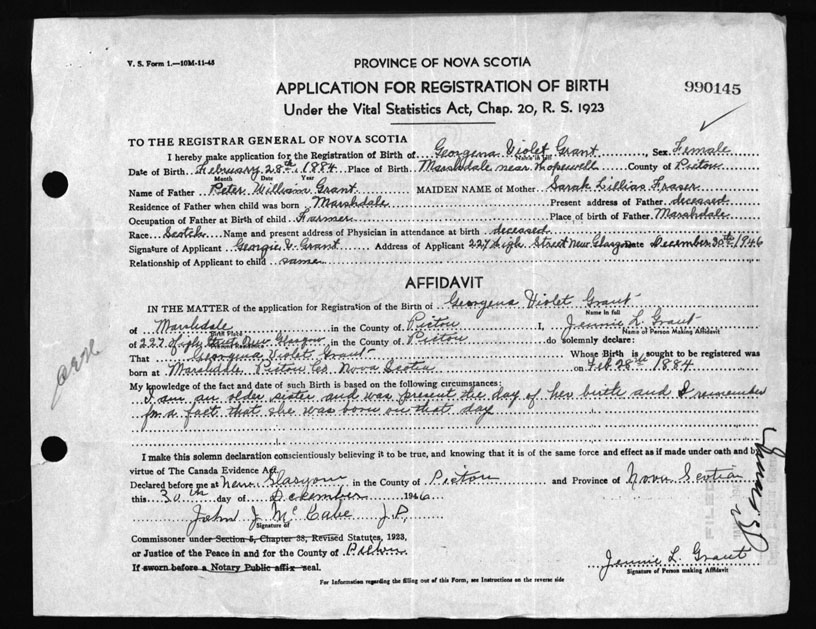 V. S. Form 1.—10M-11-43
PROVINCE OF NOVA SCOTIA
APPLICATION FOR REGISTRATION OF BIRTH
990145
Under the Vital Statistics Act, Chap. 20, R. S. 1923
TO THE REGISTRAR GENERAL OF NOVA SCOTIA
I hereby make application for the Registration of Birth of Georgena Violet Grant Sex Female
Name in full
Date of Birth February 28th 1884 Place of Birth Marshdale near Hopewell County of Pictou
Month Date Year
Name of Father Peter William Grant MAIDEN NAME of Mother Sarah Lillias Fraser
Residence of Father when child was born Marshdale Present address of Father deceased
Occupation of Father at Birth of child Farmer Place of birth of Father Marshdale
Race Scotch Name and present address of Physician in attendance at birth deceased
Signature of Applicant Georgie V. Grant Address of Applicant 227 High Street New Glasgow Date December 30th 1946
Relationship of Applicant to child same
AFFIDAVIT
IN THE MATTER of the application for Registration of the Birth of Georgena Violet Grant
Name in full
of Marshdale in the County of Pictou I, Jennie L. Grant
Birth Place Name of Person Making Affidavit
of 227 High Street New Glasgow in the County of Pictou do solemnly declare:
That Georgina Violet Grant Whose Birth is sought to be registered was
born at Marshdale Pictou Co Nova Scotia on Feb 28th 1884
My knowledge of the fact and date of such Birth is based on the following circumstances:
I am an older sister and was present the day of her birth and I remember
for a fact that she was born on that day
I make this solemn declaration conscientiously believing it to be true, and knowing that it is of the same force and effect as if made under oath and by
virtue of The Canada Evidence Act.
Declared before me at New Glasgow in the County of Pictou and Province of Nova Scotia
this 30th day of December 1946
John J. McCabe J.P.
Signature of
Commissioner under Section 5, Chapter 38, Revised Statutes, 1923,
or Justice of the Peace in and for the County of Pictou
If sworn before a Notary Public affix seal.
Jennie L. Grant
Signature of Person making Affidavit
For Information regarding the filling out of this Form, see Instructions on the reverse side